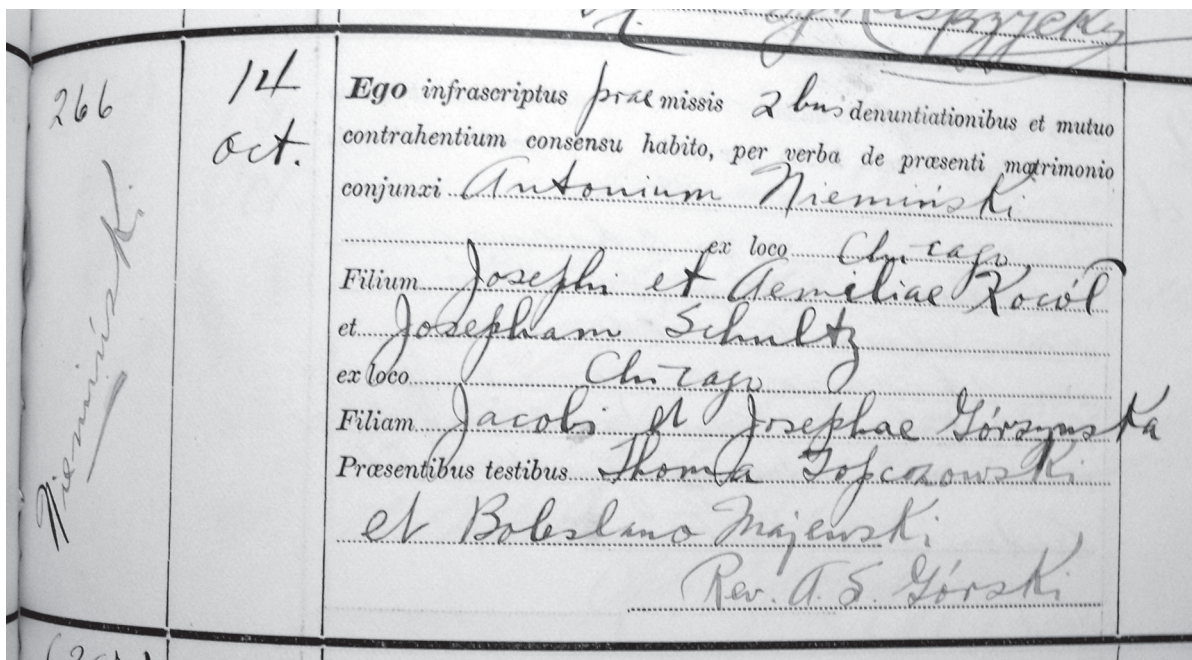 266
14
oct.
Niemiński
Ego infrascriptus praemissis 2bus denuntiationibus et mutuo
contrahentium consensu habito, per verba de præsenti matrimonio
conjunxi Antonium Niemiński
ex loco Chicago
Filium Josephi et Aemiliae Kocół
et Josepham Schultz
ex loco Chicago
Filiam Jacobi et Josephae Górszynska
Præsentibus testibus Thoma Topczowski
et Boleslano Majewski
Rev. A. S. Górski